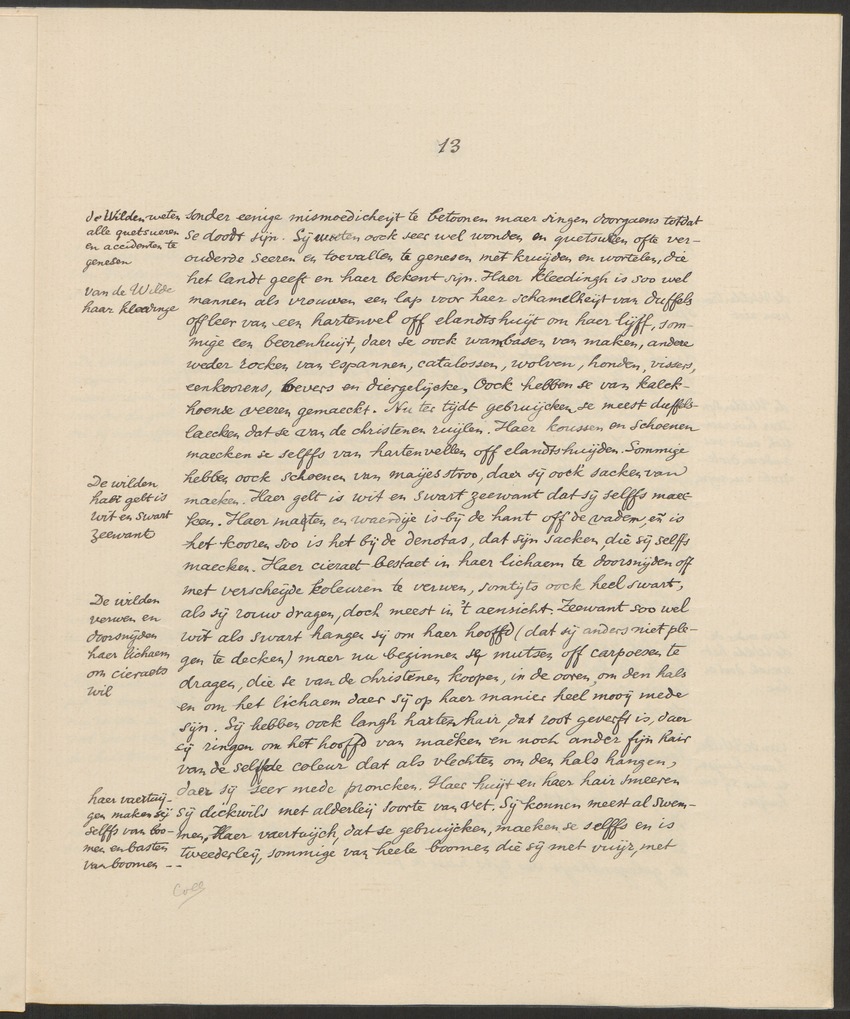 13
de Wilden weten
alle quetsueren
en accidenten te
genesen
van de Wilde
haar kledinge
sonder eenige mismoedicheijt te betoonen maer singen doorgaens totdat
se doodt sijn. Sij weten oock seer wel wonden en quetsuren ofte ver-
ouderde seeren en toevallen te genesen met kruijden en wortelen, die
het landt geeft en haer bekent sijn. Haer kleedingh is soo wel
mannen als vrouwen een lap voor haer schamelheijt van duffels
off leer van een hartenvel off elandtshuijt om haer lijff, som-
mige een beerenhuijt, daer se oock wambasen van maken, andere
weder rocken van espannen, catalossen, wolven, honden, vissers,
eenkoorens, bevers en diergelijcke. Oock hebben se van kalck-
hoense veeren gemaeckt. Nu ter tijdt gebruijcken se meest duffels
laecken dat se van de christenen ruijlen. Haer koussen en schoenen
maecken se selffs van hartenvellen off elandtshuijden. Sommige
hebben oock schoenen van maijesstroo, daer sij oock sacken van
maeken. Haer gelt is wit en swart zeewant dat sij selffs maec-
ken. Haer maeten en waerdije is bij de hant off de vadem, en is
het kooren soo is het bij de denotas, dat sijn sacken, die sij selffs
maecken. Haer cieraet bestaet in haer lichaem te doorsnijden off
met verscheijde koleuren te verwen, somtijts oock heel swart,
als sij rouw dragen, doch meest in 't aensicht. Zeewant soo wel
wit als swart hangen sij om haer hooffd (dat sij anders niet ple-
gen te decken) maer nu beginnen se mutsen off carpoesen te
dragen, die se van de christenen koopen, in de ooren, om den hals
en om het lichaem daer sij op haer manier heel mooij mede
sijn. Sij hebben oock langh harten hair, dat root geverft is, daer
sij ringen om het hooffd van maeken en noch ander fijn hair
van de selffde coleur dat als vlechten om den hals hangen,
daer sij seer mede proncken. Haer huijt en haer hair smeeren
sij dickwils met alderleij soorte van vet. Sij konnen meest al swem-
men. Haer vaertuijch, dat se gebruijcken, maeken se selffs en is
tweederleij, sommige van heele boomen die sij met vuijr, met
De wilden
haer gelt is
wit en swart
zeewant
De wilden
verwen en
doorsnijden
haer lichaem
om cieraets
wil
haer vaertuij-
gen maken sij
selffs van boo-
men en basten
van boomen --
Coll